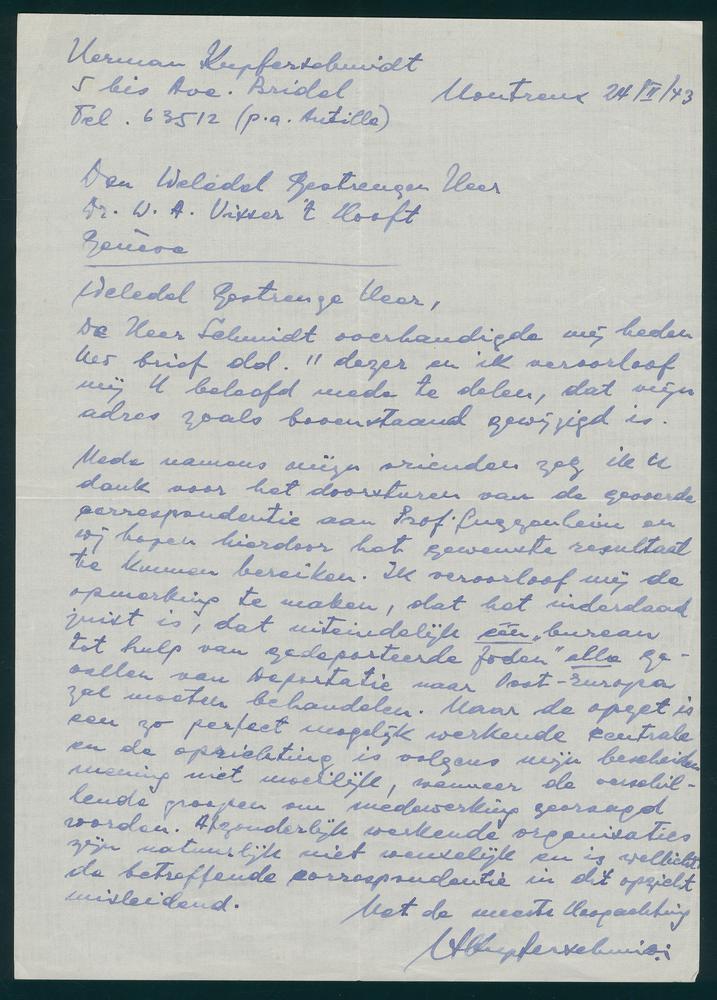 Herman Kupferschmidt
5 bis Ave. Bridel Montreux 24/II/43
Tel. 63512 (p.a. Antille)
Den Weledel Gestrengen Heer
Dr. W. A. Visser 't Hooft
Genève
Weledel Gestrenge Heer,
De Heer Schmidt overhandigde mij heden
Uw brief dd. 11 dezer en ik veroorloof
mij U beleefd mede te delen, dat mijn
adres zoals bovenstaand gewijzigd is.
Mede namens mijn vrienden zeg ik U
dank voor het doorsturen van de gevoerde
correspondentie aan Prof. Guggenheim en
wij hopen hierdoor het gewenste resultaat
te kunnen bereiken. Ik veroorloof mij de
opmerking te maken, dat het inderdaad
juist is, dat uiteindelijk één „bureau
tot hulp van gedeporteerde Joden" alle ge-
vallen van Deportatie naar Oost-Europa
zal moeten behandelen. Maar de opzet is
een zo perfect mogelijk werkende centrale
en de oprichting is volgens mijn bescheiden
mening niet moeilijk, wanneer de verschil-
lende groepen om medewerking gevraagd
worden. Afzonderlijk werkende organisaties
zijn natuurlijk niet wenselijk en is wellicht
de betreffende correspondentie in dit opzicht
misleidend.
Met de meeste Hoogachting
HKupferschmidt